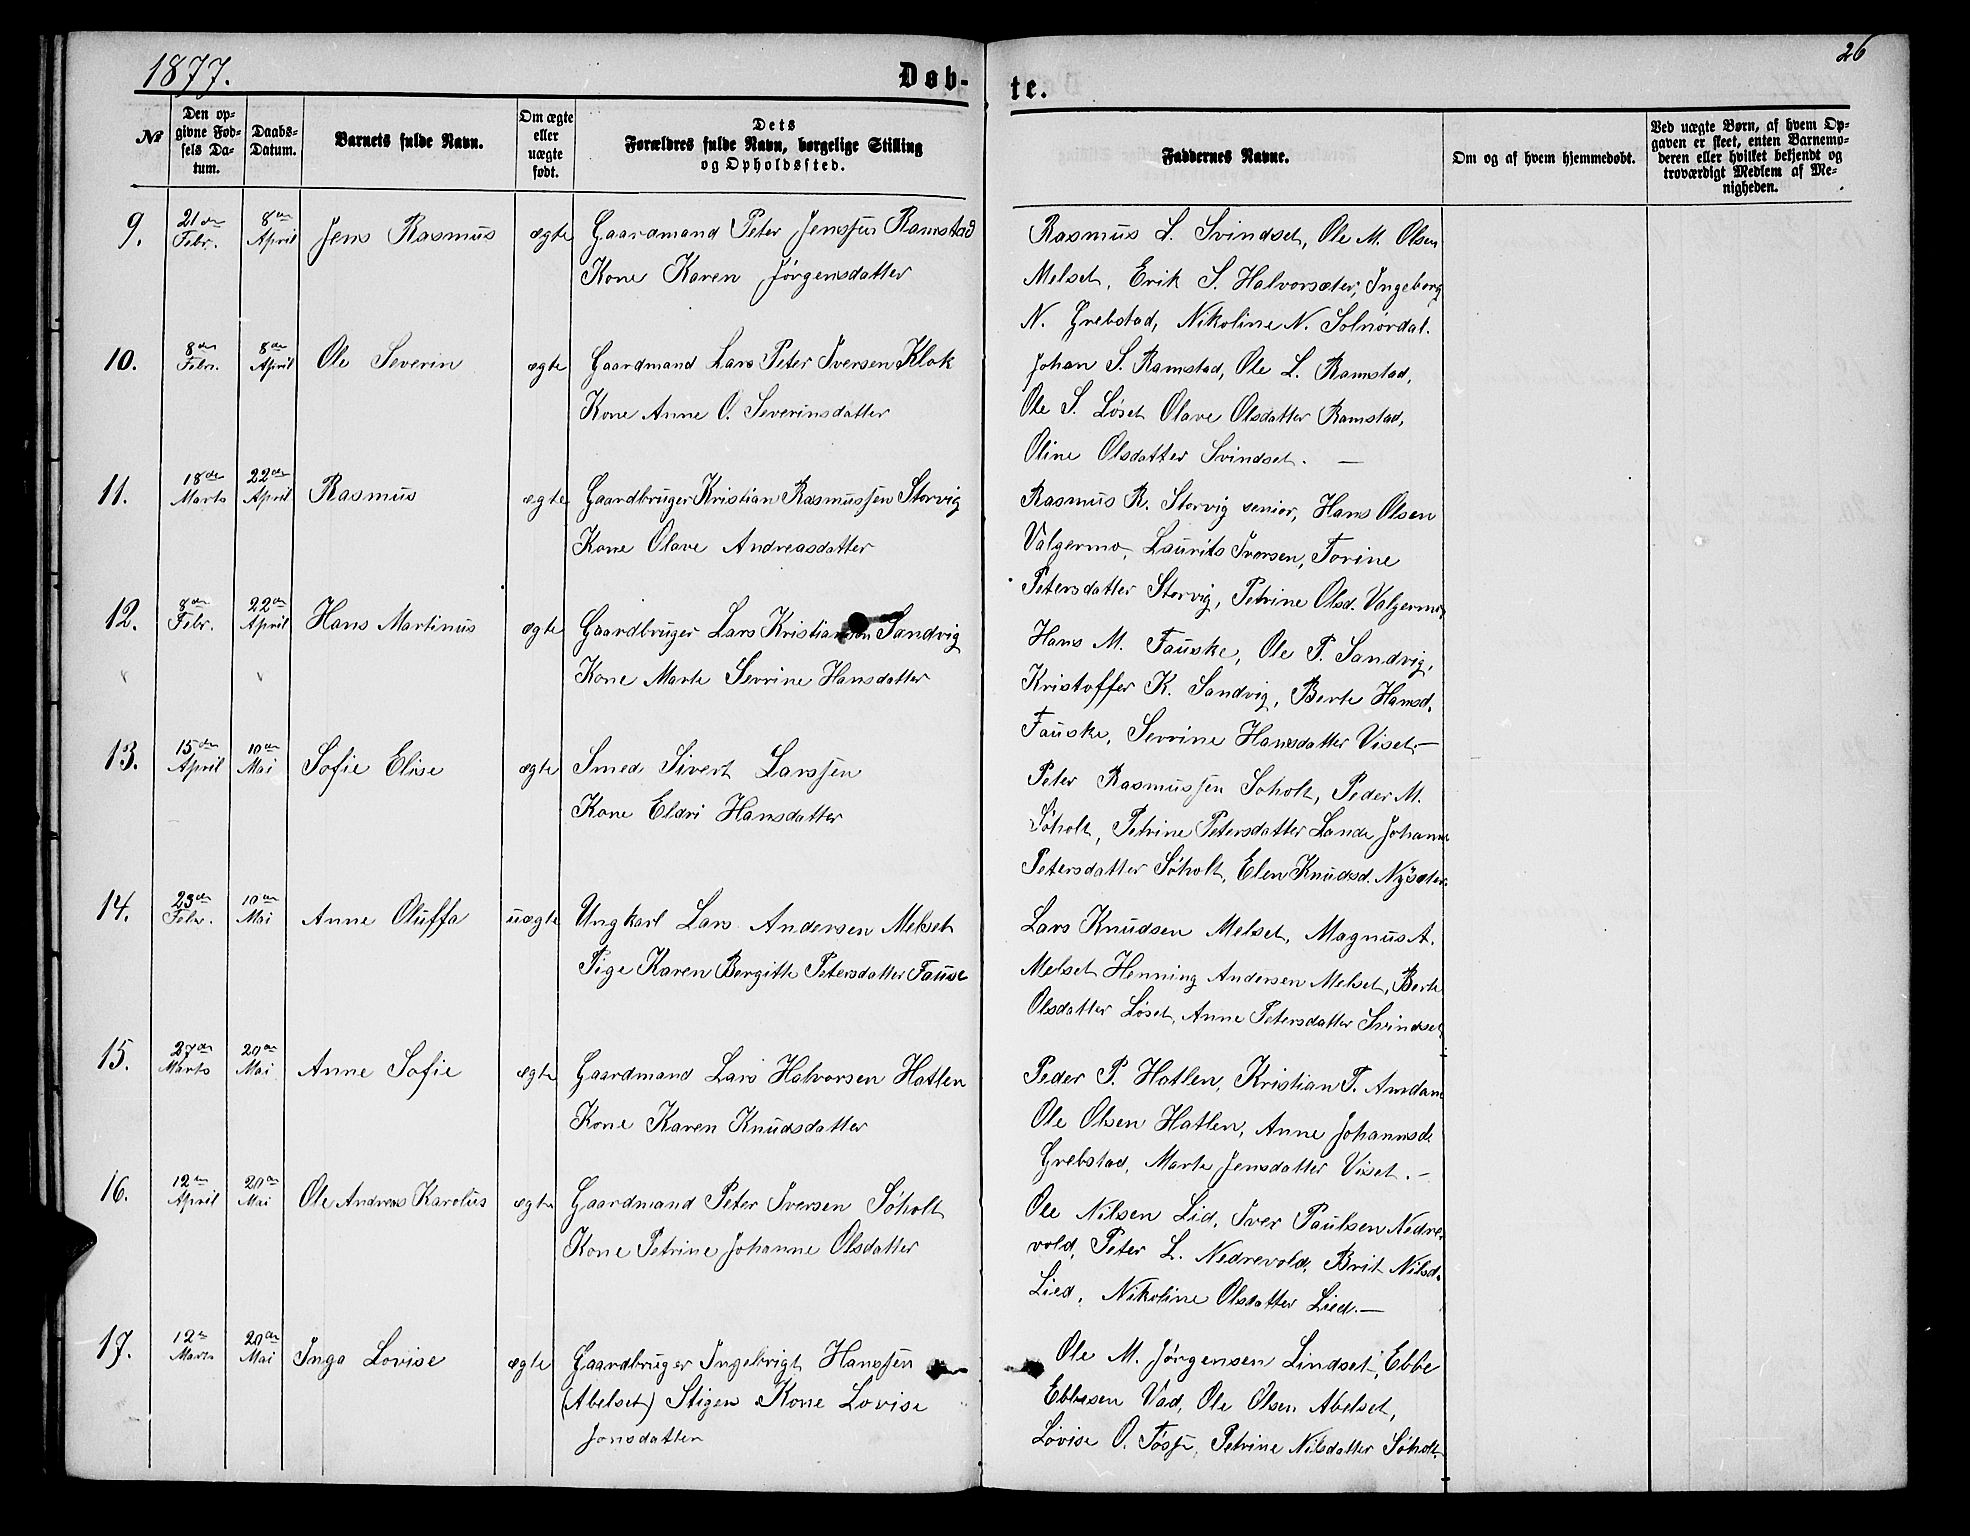 1877.
Døb-
№
Den op-
givne Fød-
sels Da-
tum.
Daabs-
Datum.
Barnets fulde Navn.
Om ægte
eller
uægte
født.
Dets
Forældres fulde Navn, borgelige Stilling
og Opholdssted.
9. 21de Febr. 8de April Jens Rasmus ægte Gaardmand Peter Jenssen Ramstad
Kone Karen Jørgensdatter
10. 8de Febr. 8de April Ole Severin ægte Gaardmand Lars Peter Iversen Klok
Kone Anne O. Severinsdatter
11. 18de Marts 22de April Rasmus ægte Gaardbruger Kristian Rasmussen Storvig
Kone Olave Andreasdatter
12. 8de Febr. 22de April Hans Martinus ægte Gaardbruger Lars Kristiansen Sandvig
Kone Marte Sevrine Hansdatter
13. 15de April 10de Mai Sofie Elise ægte Smed Sivert Larssen
Kone Eldri Hansdatter
14. 23de Febr. 10de Mai Anne Oluffa uægte Ungkarl Lars Andersen Melset
Pige Karen Bergitte Petersdatter Fause
15. 27de Marts 20de Mai Anne Sofie ægte Gaardmand Lars Halvorsen Hatlen
Kone Karen Knudsdatter
16. 12te April 20de Mai Ole Andreas Karolus ægte Gaardmand Peter Iversen Søholt
Kone Petrine Johanne Olsdatter
17. 12te Marts 20de Mai Inga Lovise ægte Gaardbruger Ingebrigt Hanssen
(Abelset) Stigen Kone Lovise
Jonsdatter
26
te.
Faddernes Navne.
Om og af hvem hjemmedøbt.
Ved uægte Børn, af hvem Op-
gaven er skeet, enten Barnemo-
deren eller hvilket bekjendt og
troværdigt Medlem af Me-
nigheden.
Rasmus L. Svindset, Ole M. Olsen
Melset, Erik S. Halvorsæter, Ingeborg
N. Grebstad, Nikoline N. Solnørdal.
Johan S. Ramstad, Ole L. Ramstad,
Ole S. Løset Olave Olsdatter Ramstad,
Oline Olsdatter Svindset. —
Rasmus R. Storvig senior, Hans Olsen
Valgermo, Laurits Iversen, Torine
Petersdatter Storvig, Petrine Olsd. Valgermo,
Hans M. Fauske, Ole P. Sandvig,
Kristoffer K. Sandvig, Berte Hansd.
Fauske, Sevrine Hansdatter Viset. —
Peter Rasmussen Søholt, Peder M.
Søholt, Petrine Petersdatter Lande Johanne
Petersdatter Søholt, Elen Knudsd. Nysæter.
Lars Knudsen Melset, Magnus A.
Melset Henning Andersen Melset, Berte
Olsdatter Løset, Anne Petersdatter Svindset
Peder P. Hatlen, Kristian T. Amdam
Ole Olsen Hatlen, Anne Johannsd.
Grebstad, Marte Jensdatter Viset. —
Ole Nilsen Lid, Iver Paulsen Nedre-
vold, Peter L. Nedrevold, Brit Nilsd.
Lied, Nikoline Olsdatter Lied. —
Ole M. Jørgensen Lindset, Ebbe
Ebbesen Vad, Ole Olsen Abelset,
Lovise O. Petrine Nilsdatter Søholt.